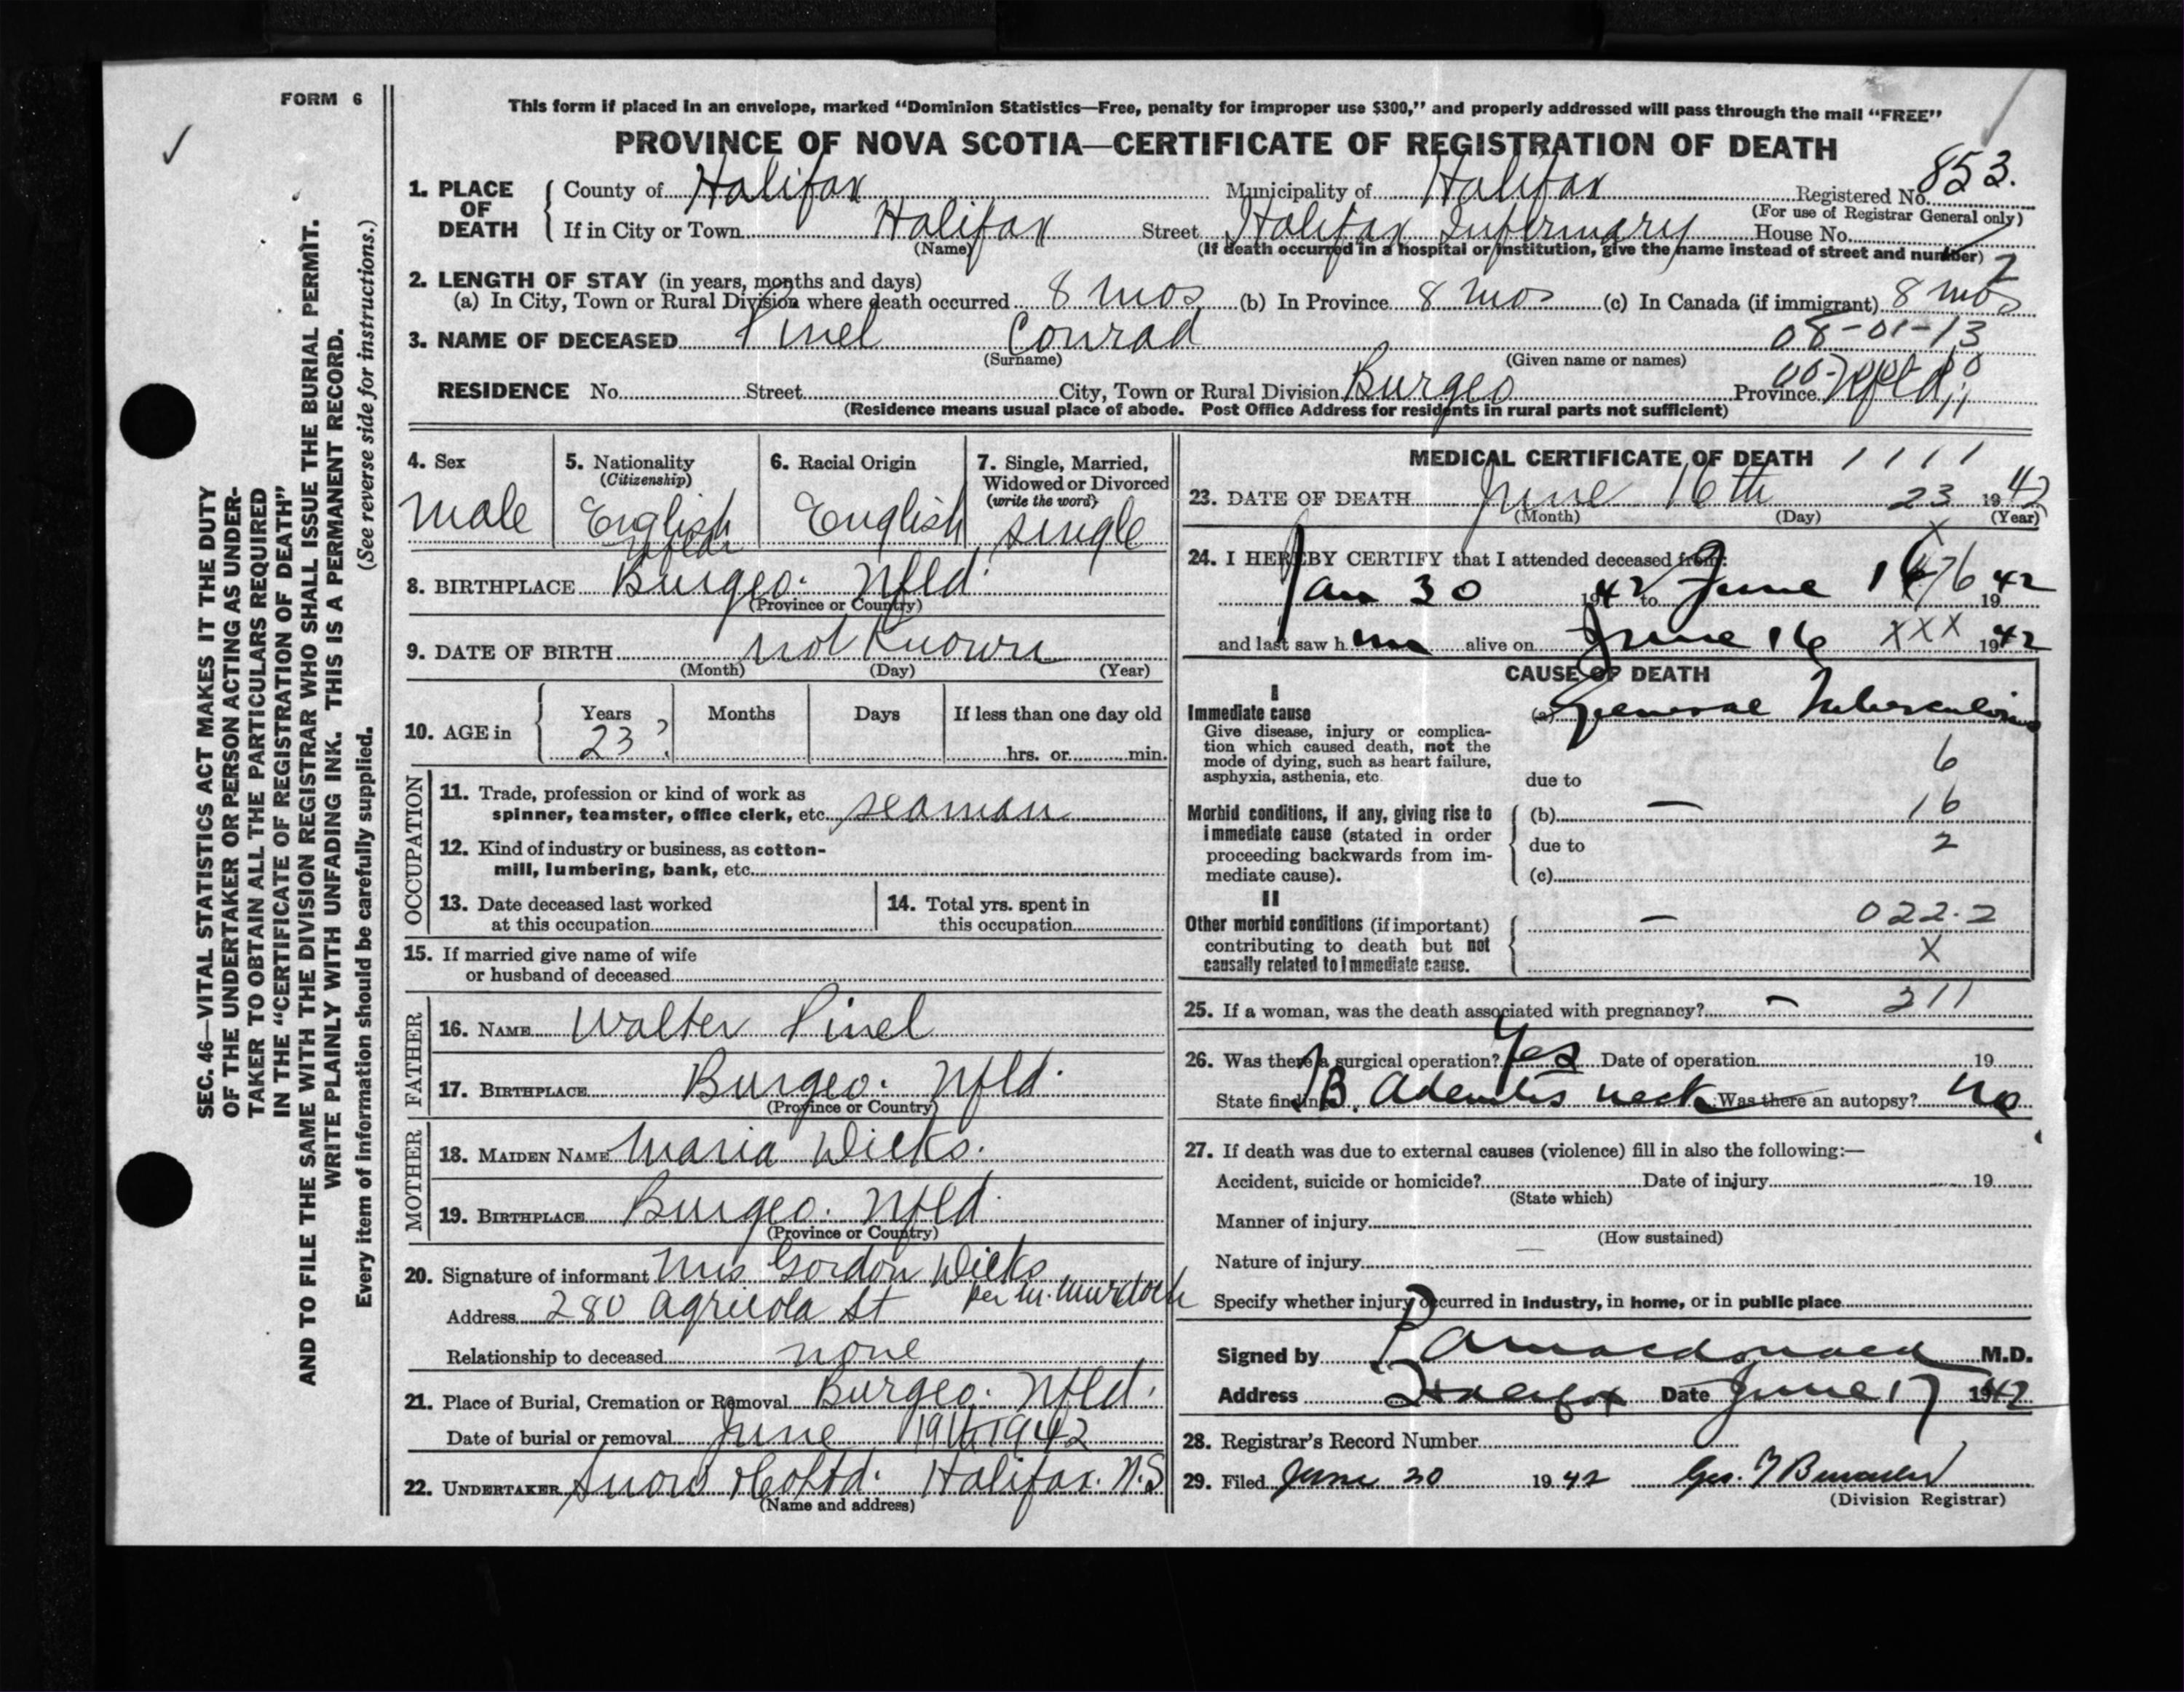 FORM 6
This form if placed in an envelope, marked “Dominion Statistics—Free, penalty for improper use $300,” and properly addressed will pass through the mail “FREE”
PROVINCE OF NOVA SCOTIA—CERTIFICATE OF REGISTRATION OF DEATH
853.
1. PLACE OF DEATH County of Halifax Municipality of Halifax Registered No.
(For use of Registrar General only)
If in City or Town Halifax Street Halifax Infirmary House No.
(Name) (If death occurred in a hospital or institution, give the name instead of street and number)
2
2. LENGTH OF STAY (in years, months and days)
(a) In City, Town or Rural Division where death occurred 8 mos (b) In Province 8 mos (c) In Canada (if immigrant) 8 mos
08-01-13
3. NAME OF DECEASED Pinel Conrad
(Surname) (Given name or names)
RESIDENCE No. Street City, Town or Rural Division Burgeo Province Nfld
(Residence means usual place of abode. Post Office Address for residents in rural parts not sufficient)
4. Sex
male
5. Nationality
(Citizenship)
English
Nfldr
6. Racial Origin
English
7. Single, Married,
Widowed or Divorced
(write the word)
single
8. BIRTHPLACE Burgeo. Nfld.
(Province or Country)
9. DATE OF BIRTH not known
(Month) (Day) (Year)
10. AGE in Years Months Days If less than one day old
23 ? hrs. or min.
OCCUPATION
11. Trade, profession or kind of work as
spinner, teamster, office clerk, etc. seaman
12. Kind of industry or business, as cotton-
mill, lumbering, bank, etc.
13. Date deceased last worked
at this occupation
14. Total yrs. spent in
this occupation
15. If married give name of wife
or husband of deceased
FATHER
16. NAME Walter Pinel
17. BIRTHPLACE Burgeo. Nfld.
(Province or Country)
MOTHER
18. MAIDEN NAME Maria Dicks.
19. BIRTHPLACE Burgeo. Nfld.
(Province or Country)
20. Signature of informant Mrs Gordon Dicks
per M. Murdoch
Address 280 Agricola St
Relationship to deceased none
21. Place of Burial, Cremation or Removal Burgeo. Nfld.
Date of burial or removal June 19th 1942
22. UNDERTAKER Snow & Co Ltd. Halifax. N.S
(Name and address)
MEDICAL CERTIFICATE OF DEATH 1111
23. DATE OF DEATH June 16th 23 1942
(Month) (Day) (Year)
24. I HEREBY CERTIFY that I attended deceased from:
Jan 30 1942 to June 16 1942
and last saw him alive on June 16 XXX 1942
CAUSE OF DEATH
I
Immediate cause
Give disease, injury or complica-
tion which caused death, not the
mode of dying, such as heart failure,
asphyxia, asthenia, etc.
(a) General Tuberculosis
6
due to
Morbid conditions, if any, giving rise to
immediate cause (stated in order
proceeding backwards from im-
mediate cause).
(b) — 16
due to 2
(c)
II
Other morbid conditions (if important)
contributing to death but not
causally related to immediate cause.
— 022.2
X
25. If a woman, was the death associated with pregnancy? — 211
26. Was there a surgical operation? Yes Date of operation 19
State findings TB. Adenitis neck Was there an autopsy? No
27. If death was due to external causes (violence) fill in also the following:—
Accident, suicide or homicide? Date of injury 19
(State which)
Manner of injury
(How sustained)
Nature of injury
Specify whether injury occurred in industry, in home, or in public place
Signed by P A Macdonald M.D.
Address Halifax Date June 17 1942
28. Registrar's Record Number
29. Filed June 20 1942 Geo.
(Division Registrar)
SEC. 46—VITAL STATISTICS ACT MAKES IT THE DUTY
OF THE UNDERTAKER OR PERSON ACTING AS UNDER-
TAKER TO OBTAIN ALL THE PARTICULARS REQUIRED
IN THE “CERTIFICATE OF REGISTRATION OF DEATH”
AND TO FILE THE SAME WITH THE DIVISION REGISTRAR WHO SHALL ISSUE THE BURIAL PERMIT.
WRITE PLAINLY WITH UNFADING INK. THIS IS A PERMANENT RECORD.
Every item of information should be carefully supplied. (See reverse side for instructions.)